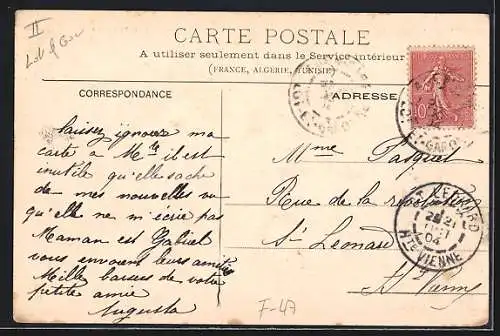 II
Lot & Gar
CARTE POSTALE
A utiliser seulement dans le Service intérieur
(FRANCE, ALGÉRIE, TUNISIE)
CORRESPONDANCE
ADRESSE
laissez ignorer ma
carte à Mlle il est
inutile qu'elle sache
de mes nouvelles vu
qu'elle ne m'écrie pas
Maman est Gabriel
vous envoient leurs amitiés
Mille baisers de votre
petite amie
Augusta
Mme Pasquet
Rue de la révolution
St Léonard
Hte Vienne
LOT-ET-GARONNE
10
ST LEONARD
21
OCT
04
HTE VIENNE
F-47